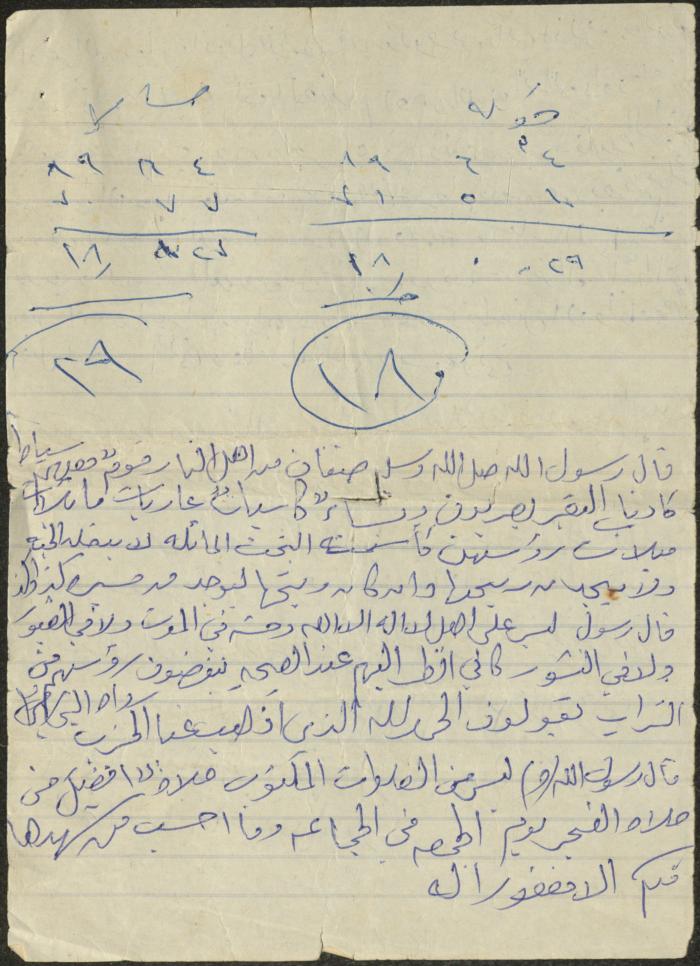 ٨٩ ٦ ٤
١٨ ٢٩
١٨
٢٩
قال رسول الله صل الله وسلم صنفان من اهل النار قوم معهم سياط
كاذناب البقر يضربون ونساء كاسيات عاريات مائلات
مميلات رؤسهن كأسنمة البخت المائله لا يدخلن الجنه
ولا يجدن ريحها وان كان ريحها ليوجد من مسيره كذا وكذا
قال رسول ليس على اهل لا اله الا الله وحشه في الموت ولا في القبور
ولا في النشور كاني انظر اليهم عند الصحيه ينفضون رؤسهم من
التراب يقولون الحمد لله الذي اذهب عنا الحزن
قال رسول الله (ص) ليس من الصلوات المكتوبه صلاة افضل من
صلاة الفجر يوم الجمعه في الجماعه وما احسب من شهدها
منكم الا مغفورا له